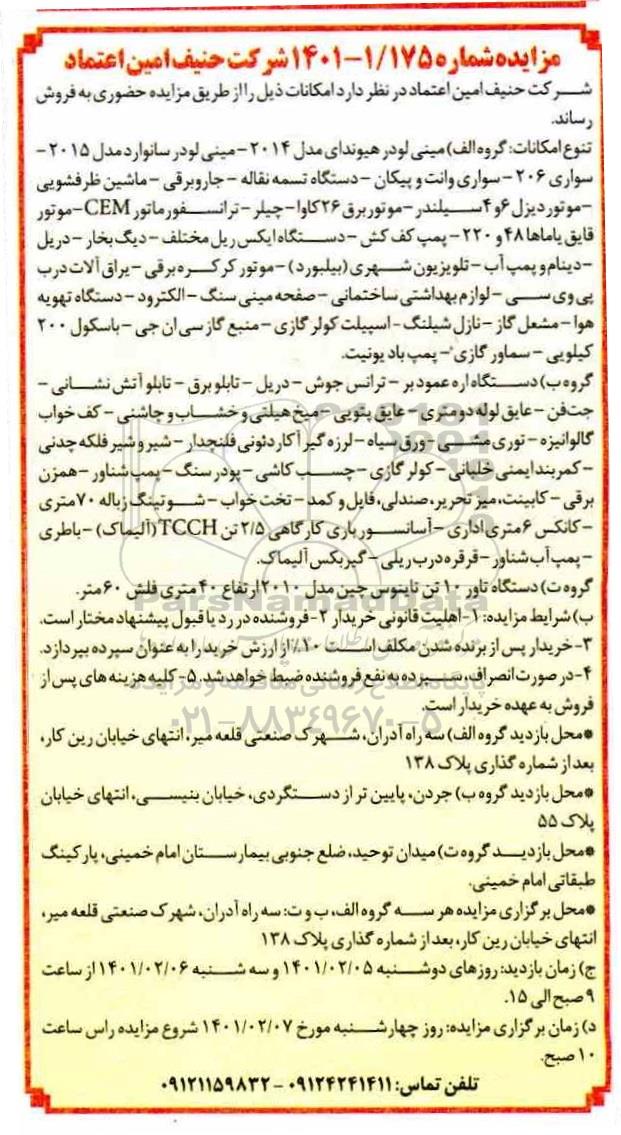 مزایده شماره ۱/۱۷۵-۱۴۰۱ شرکت حنیف امین اعتماد
شرکت حنیف امین اعتماد در نظر دارد امکانات ذیل را از طریق مزایده حضوری به فروش
رساند.
تنوع امکانات: گروه الف) مینی لودر هیوندای مدل ۲۰۱۴ - مینی لودر سانوارد مدل ۲۰۱۵ -
سواری ۲۰۶ - سواری وانت و پیکان - دستگاه تسمه نقاله - جاروبرقی - ماشین ظرفشویی
- موتور دیزل ۶ و ۴ سیلندر - موتور برق ۲۶ کاوا - چیلر - ترانسفورماتور CEM - موتور
قایق یاماها ۴۸ و ۲۲۰ - پمپ کف کش - دستگاه ایکس ریل مختلف - دیگ بخار - دریل
- دینام و پمپ آب - تلویزیون شهری (بیلبورد) - موتور کرکره برقی - یراق آلات درب
پی وی سی - لوازم بهداشتی ساختمانی - صفحه مینی سنگ - الکترود - دستگاه تهویه
هوا - مشعل گاز - نازل شیلنگ - اسپیلت کولر گازی - منبع گاز سی ان جی - باسکول ۲۰۰
کیلویی - سماور گازی - پمپ باد یونیت.
گروه ب) دستگاه اره عمود بر - ترانس جوش - دریل - تابلو برق - تابلو آتش نشانی -
جت فن - عایق لوله دو متری - عایق پتویی - میخ هیلتی و خشاب و چاشنی - کف خواب
گالوانیزه - توری مشی - ورق سیاه - لرزه گیر آکاردئونی فلنجدار - شیر و شیر فلکه چدنی
- کمربند ایمنی خلبانی - کولر گازی - چسب کاشی - پودر سنگ - پمپ شناور - همزن
برقی - کابینت، میز تحریر، صندلی، فایل و کمد - تخت خواب - شوتینگ زباله ۷۰ متری
- کانکس ۶ متری اداری - آسانسور باری کارگاهی ۲/۵ تن TCCH (آلیماک) - باطری
- پمپ آب شناور - قرقره درب ریلی - گیربکس آلیماک.
گروه ت) دستگاه تاور ۱۰ تن تاپنوس چین مدل ۲۰۱۰ ارتفاع ۴۰ متری فلش ۶۰ متر.
ب) شرایط مزایده: ۱- اهلیت قانونی خریدار ۲- فروشنده در رد یا قبول پیشنهاد مختار است.
۳- خریدار پس از برنده شدن مکلف است ۱۰٪ از ارزش خرید را به عنوان سپرده بپردازد.
۴- در صورت انصراف، سپرده به نفع فروشنده ضبط خواهد شد. ۵- کلیه هزینه های پس از
فروش به عهده خریدار است.
*محل بازدید گروه الف) سه راه آدران، شهرک صنعتی قلعه میر، انتهای خیابان رین کار،
بعد از شماره گذاری پلاک ۱۳۸
*محل بازدید گروه ب) جردن، پایین تر از دستگردی، خیابان بنیسی، انتهای خیابان
پلاک ۵۵
*محل بازدید گروه ت) میدان توحید، ضلع جنوبی بیمارستان امام خمینی، پارکینگ
طبقاتی امام خمینی.
*محل برگزاری مزایده هر سه گروه الف، ب و ت: سه راه آدران، شهرک صنعتی قلعه میر،
انتهای خیابان رین کار، بعد از شماره گذاری پلاک ۱۳۸
ج) زمان بازدید: روزهای دوشنبه ۱۴۰۱/۰۲/۰۵ و سه شنبه ۱۴۰۱/۰۲/۰۶ از ساعت
۹ صبح الی ۱۵.
د) زمان برگزاری مزایده: روز چهارشنبه مورخ ۱۴۰۱/۰۲/۰۷ شروع مزایده راس ساعت
۱۰ صبح.
تلفن تماس: ۰۹۱۲۴۲۴۱۴۱۱ - ۰۹۱۲۱۱۵۹۸۳۲
ParsNamadData
۰۲۱-۸۸۳۴۹۶۷۰-۵